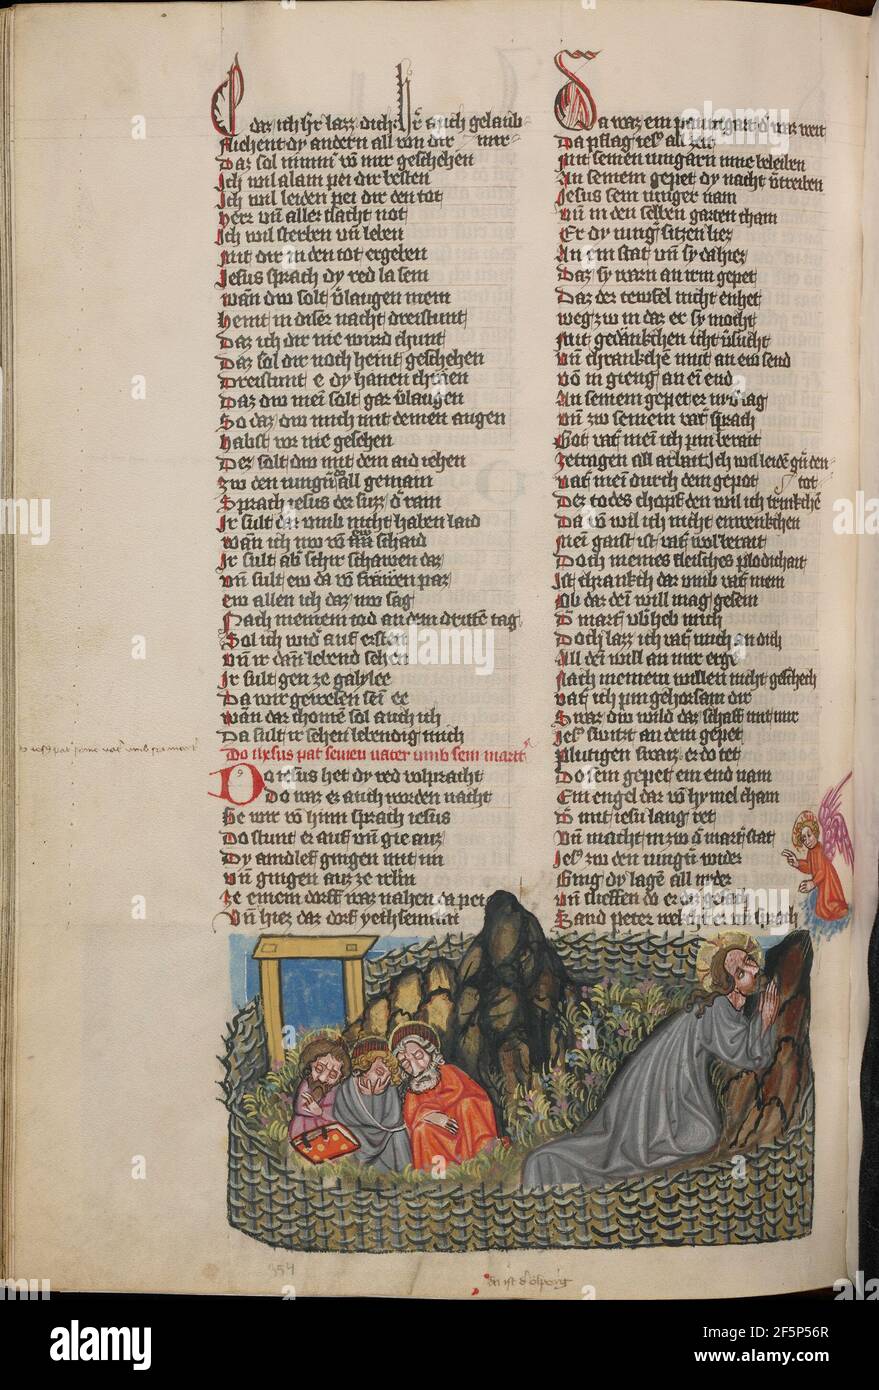 daz ich hr lazz dich
auch gelaub
mir
Daz sol nimm võ mir geschehen
Ich wil alain pei dir besten
Ich wil leiden pei dir den tot
herr vñ aller slacht not
Ich wil sterben vñ leben
Mit dir in den tot ergeben
Jesus sprach dy red la sein
wañ dw solt v̄laugen mein
heint in diser nacht dreistunt
Daz ich dir nie wurd chunt
Daz sol dir noch heint geschehen
Dreistunt e dy hanen chreien
Daz dw mei solt gar v̄laugen
So daz dw mich mit deinen augen
habst vor nie gesehen
Dez solt dw mit dem aid iehen
zw den iungñ all gemain
Sprach iesus der suzz
Ir sult dar vmb nicht haben laid
wañ ich nw võ schaid
Ir sult ab schir schawen daz
vñ sult ew da võ frawen paz
ew allen ich daz nw sag
Nach meinem tod an dem dritte tag
Sol ich wid auf ersten
vñ ir dañ lebend sehen
Ir sult gen ze galylee
Da wir gewesen sei ee
wañ dar chomē sol auch ich
Da sult ir sehen lebendig mich
Do ihesus pat seinen vater vmb sein martt
Do iesus het dy red volpracht
Do war er auch worden nacht
wir võ hinn sprach iesus
Do stunt er auf vñ gie auz
Dy aindlef gingen mit im
vñ gingen auz ze
ze einem dorff waz nahen da pei
vñ hiez daz dorf yethsemani
Da waz ein pawmgart d waz weit
Da pflag ies all zeit
Mit seinen iungarn inne beleiben
An seinem gepet dy nacht v̄treiben
Jesus sein iunger nam
vñ in den selben garten cham
Er dy iung sitzen hiez
An ein stat vñ sy da liez
Daz sy warn an irm gepet
Daz der tewfel nicht enhet
weg zw in daz er sy mocht
Mit gedankchen icht v̄sucht
vñ chrankche mit an ew send
võ in gieng an ei end
An seinem gepet er lag
vñ zw seinem vat sprach
Got vat mei ich pin berait
ze tragen all arbait Ich wil leide den
vat mei durch dein gepot tot
Der todes choph den wil ich trinkche
Da võ wil ich nicht enwenkchen
Mei gaist ist vat wol berait
Doch meines fleisches plodichait
Ist chrankch dar vmb vat mein
Ob daz dei will mag gesein
D mart vb heb mich
Doch lazz ich vat mich an dich
All dei will an mir erge
Nach meinem willen nicht geschech
vat ich pin gehorsam dir
Swaz dw wild daz schaff mit mir
Jes switzt an dem gepet
Plutigen swaiz er do tet
Do sein gepet ein end nam
Ein engel dar võ hymel cham
D mit iesu lang ret
vñ macht in zw d mart stat
Jes zw den iungñ wider
Ging dy lagē all nyder
vñ slieffen do er daz gesach
Sand peter wekcht er vñ sprach
354
da ist d olperg
alamy
Image ID: 2F5P56R
www.alamy.com